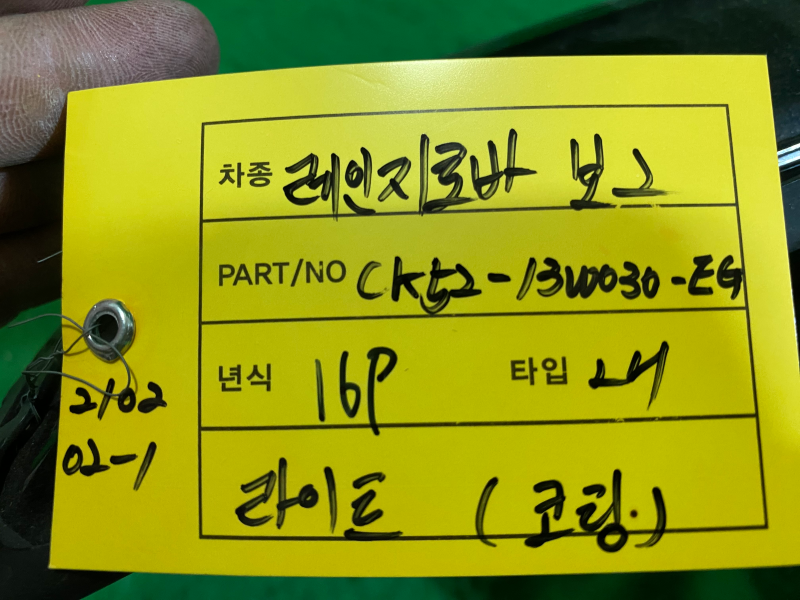 차종 레인지로바 보그
PART/NO CK52-13W030-EG
년식 16P 타입 내
2102
02-1
라이트 (코팅.)